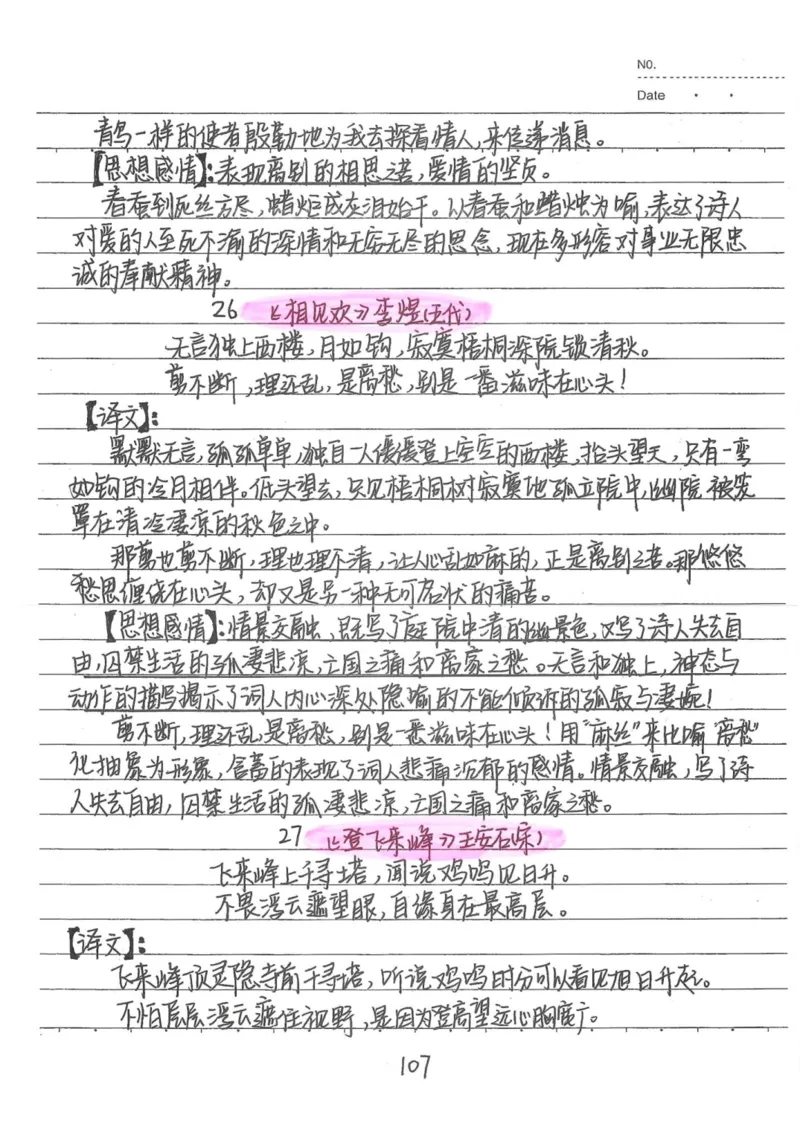 NO.
Date
青鸟一样的使者殷勤地为我去探看情人,来传递消息。
【思想感情】:表现离别的相思之苦,爱情的坚贞。
春蚕到死丝方尽,蜡炬成灰泪始干。以春蚕和蜡烛为喻,表达了诗人
对爱的人至死不渝的深情和无穷无尽的思念,现在多形容对事业无限忠
诚的奉献精神。
26 《相见欢》李煜(五代)
无言独上西楼,月如钩,寂寞梧桐深院锁清秋。
剪不断,理还乱,是离愁,别是一番滋味在心头!
【译文】:
默默无言,孤孤单单,独自一人缓缓登上空空的西楼,抬头望天,只有一弯
如钩的冷月相伴。低头望去,只见梧桐树寂寞地孤立院中,幽院被笼
罩在清冷凄凉的秋色之中。
那剪也剪不断,理也理不清,让人心乱如麻的,正是离别之苦。那悠悠
愁思缠绕在心头,却又是另一种无可名状的痛苦。
【思想感情】:情景交融,既写了庭院中清的幽景色,又写了诗人失去自
由,囚禁生活的孤凄悲凉,亡国之痛和离家之愁。无言和独上,神态与
动作的描写揭示了词人内心深处隐喻的不能倾诉的孤寂与凄婉!
剪不断,理还乱是离愁,别是一番滋味在心头!用"麻丝"来比喻"离愁"
化抽象为形象,含蓄的表现了词人悲痛沉郁的感情。情景交融,写了诗
人失去自由,囚禁生活的孤凄悲凉,亡国之痛和离家之愁。
27 《登飞来峰》王安石(宋)
飞来峰上千寻塔,闻说鸡鸣见日升。
不畏浮云遮望眼,自缘身在最高层。
【译文】:
飞来峰顶灵隐寺前千寻塔,听说鸡鸣时分可以看见旭日升起。
不怕层层浮云遮住视野,是因为登高望远心胸宽广。
107